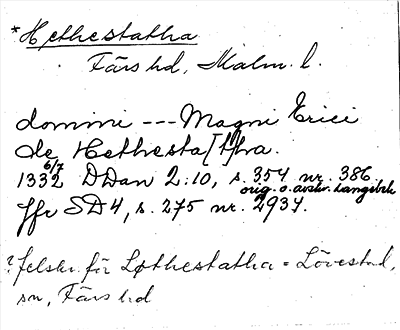 *Hethestatha
Färs hd, Malm. l.
domini --- Magni Erici
de Hethesta[t]hra.
6/7
1332 DDan 2:10, s. 354 nr. 386.
orig. o. avskr. Langebek
Jfr SD4, s. 275 nr. 2937.
? felskr. för Løthestatha = Lövestad,
sn, Färs hd